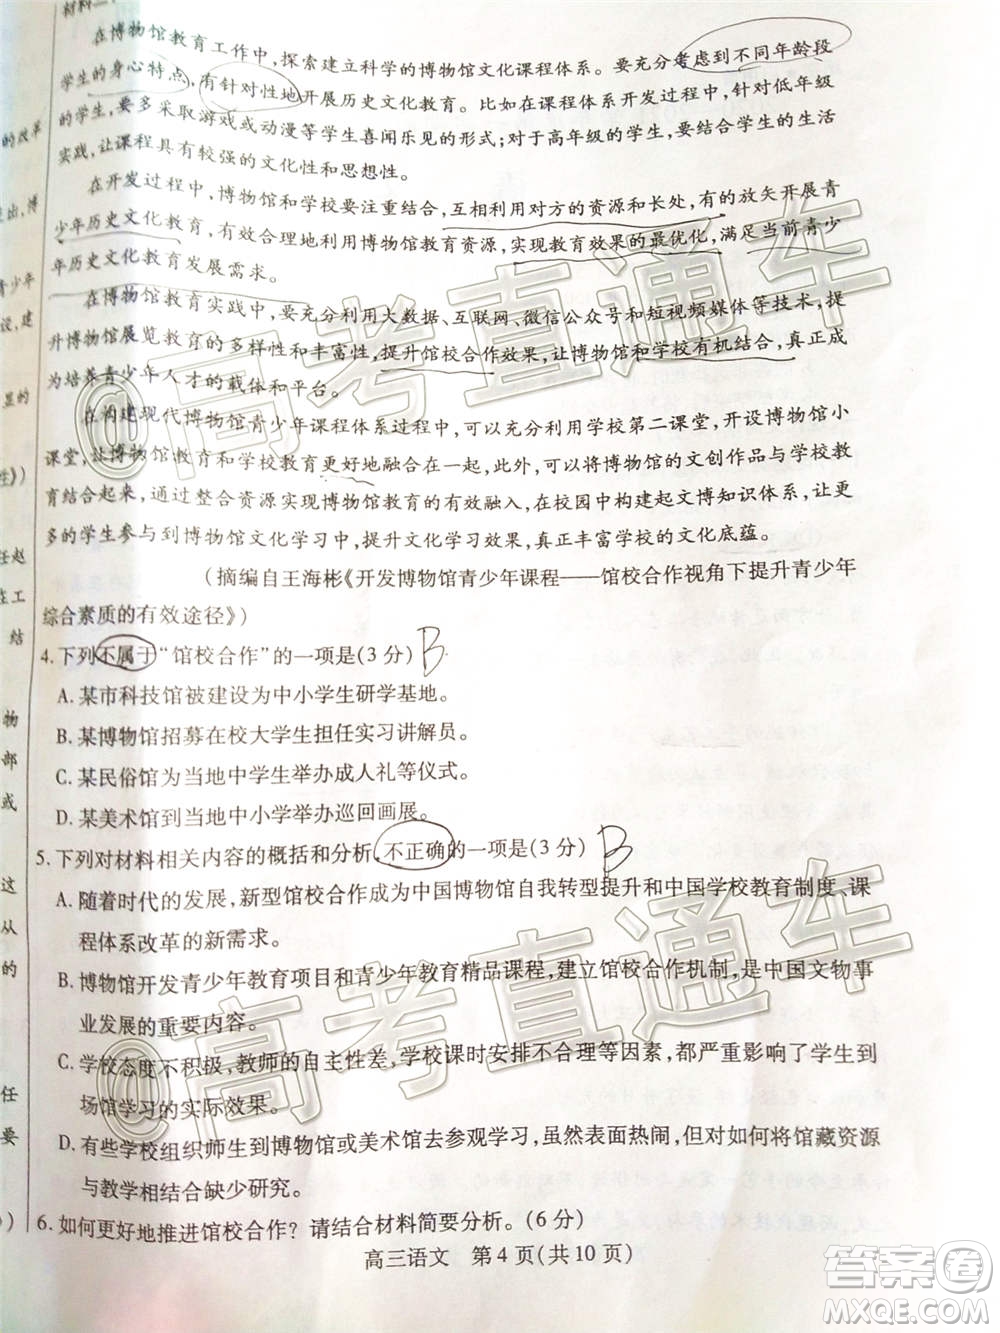 材料二
在博物馆教育工作中，探索建立科学的博物馆文化课程体系。要充分考虑到不同年龄段
学生的身心特点，有针对性地开展历史文化教育。比如在课程体系开发过程中，针对低年级
的学生，要多采取游戏或动漫等学生喜闻乐见的形式；对于高年级的学生，要结合学生的生活
实践，让课程具有较强的文化性和思想性。
在开发过程中，博物馆和学校要注重结合，互相利用对方的资源和长处，有的放矢开展青
少年历史文化教育，有效合理地利用博物馆教育资源，实现教育效果的最优化，满足当前青少
年历史文化教育发展需求。
在博物馆教育实践中，要充分利用大数据、互联网、微信公众号和短视频媒体等技术，提
升博物馆展览教育的多样性和丰富性，提升馆校合作效果，让博物馆和学校有机结合，真正成
为培养青少年人才的载体和平台。
在构建现代博物馆青少年课程体系过程中，可以充分利用学校第二课堂，开设博物馆小
课堂，让博物馆教育和学校教育更好地融合在一起，此外，可以将博物馆的文创作品与学校教
育结合起来，通过整合资源实现博物馆教育的有效融入，在校园中构建起文博知识体系，让更
多的学生参与到博物馆文化学习中，提升文化学习效果，真正丰富学校的文化底蕴。
（摘编自王海彬《开发博物馆青少年课程——馆校合作视角下提升青少年
综合素质的有效途径》）
4.下列不属于“馆校合作”的一项是(3分) B
A.某市科技馆被建设为中小学生研学基地。
B.某博物馆招募在校大学生担任实习讲解员。
C.某民俗馆为当地中学生举办成人礼等仪式。
D.某美术馆到当地中小学举办巡回画展。
5.下列对材料相关内容的概括和分析，不正确的一项是(3分) B
A.随着时代的发展，新型馆校合作成为中国博物馆自我转型提升和中国学校教育制度、课
程体系改革的新需求。
B.博物馆开发青少年教育项目和青少年教育精品课程，建立馆校合作机制，是中国文物事
业发展的重要内容。
C.学校态度不积极，教师的自主性差，学校课时安排不合理等因素，都严重影响了学生到
场馆学习的实际效果。
D.有些学校组织师生到博物馆或美术馆去参观学习，虽然表面热闹，但对如何将馆藏资源
与教学相结合缺少研究。
6.如何更好地推进馆校合作？请结合材料简要分析。(6分)
高三语文 第4页(共10页)
的改革
出，博
青少年
设，建
里的
性》）
任赵
在工
结
物
部
或
这
从
的
任
要
@高考直通车
@高考直通车
答案圈
MXQE.COM